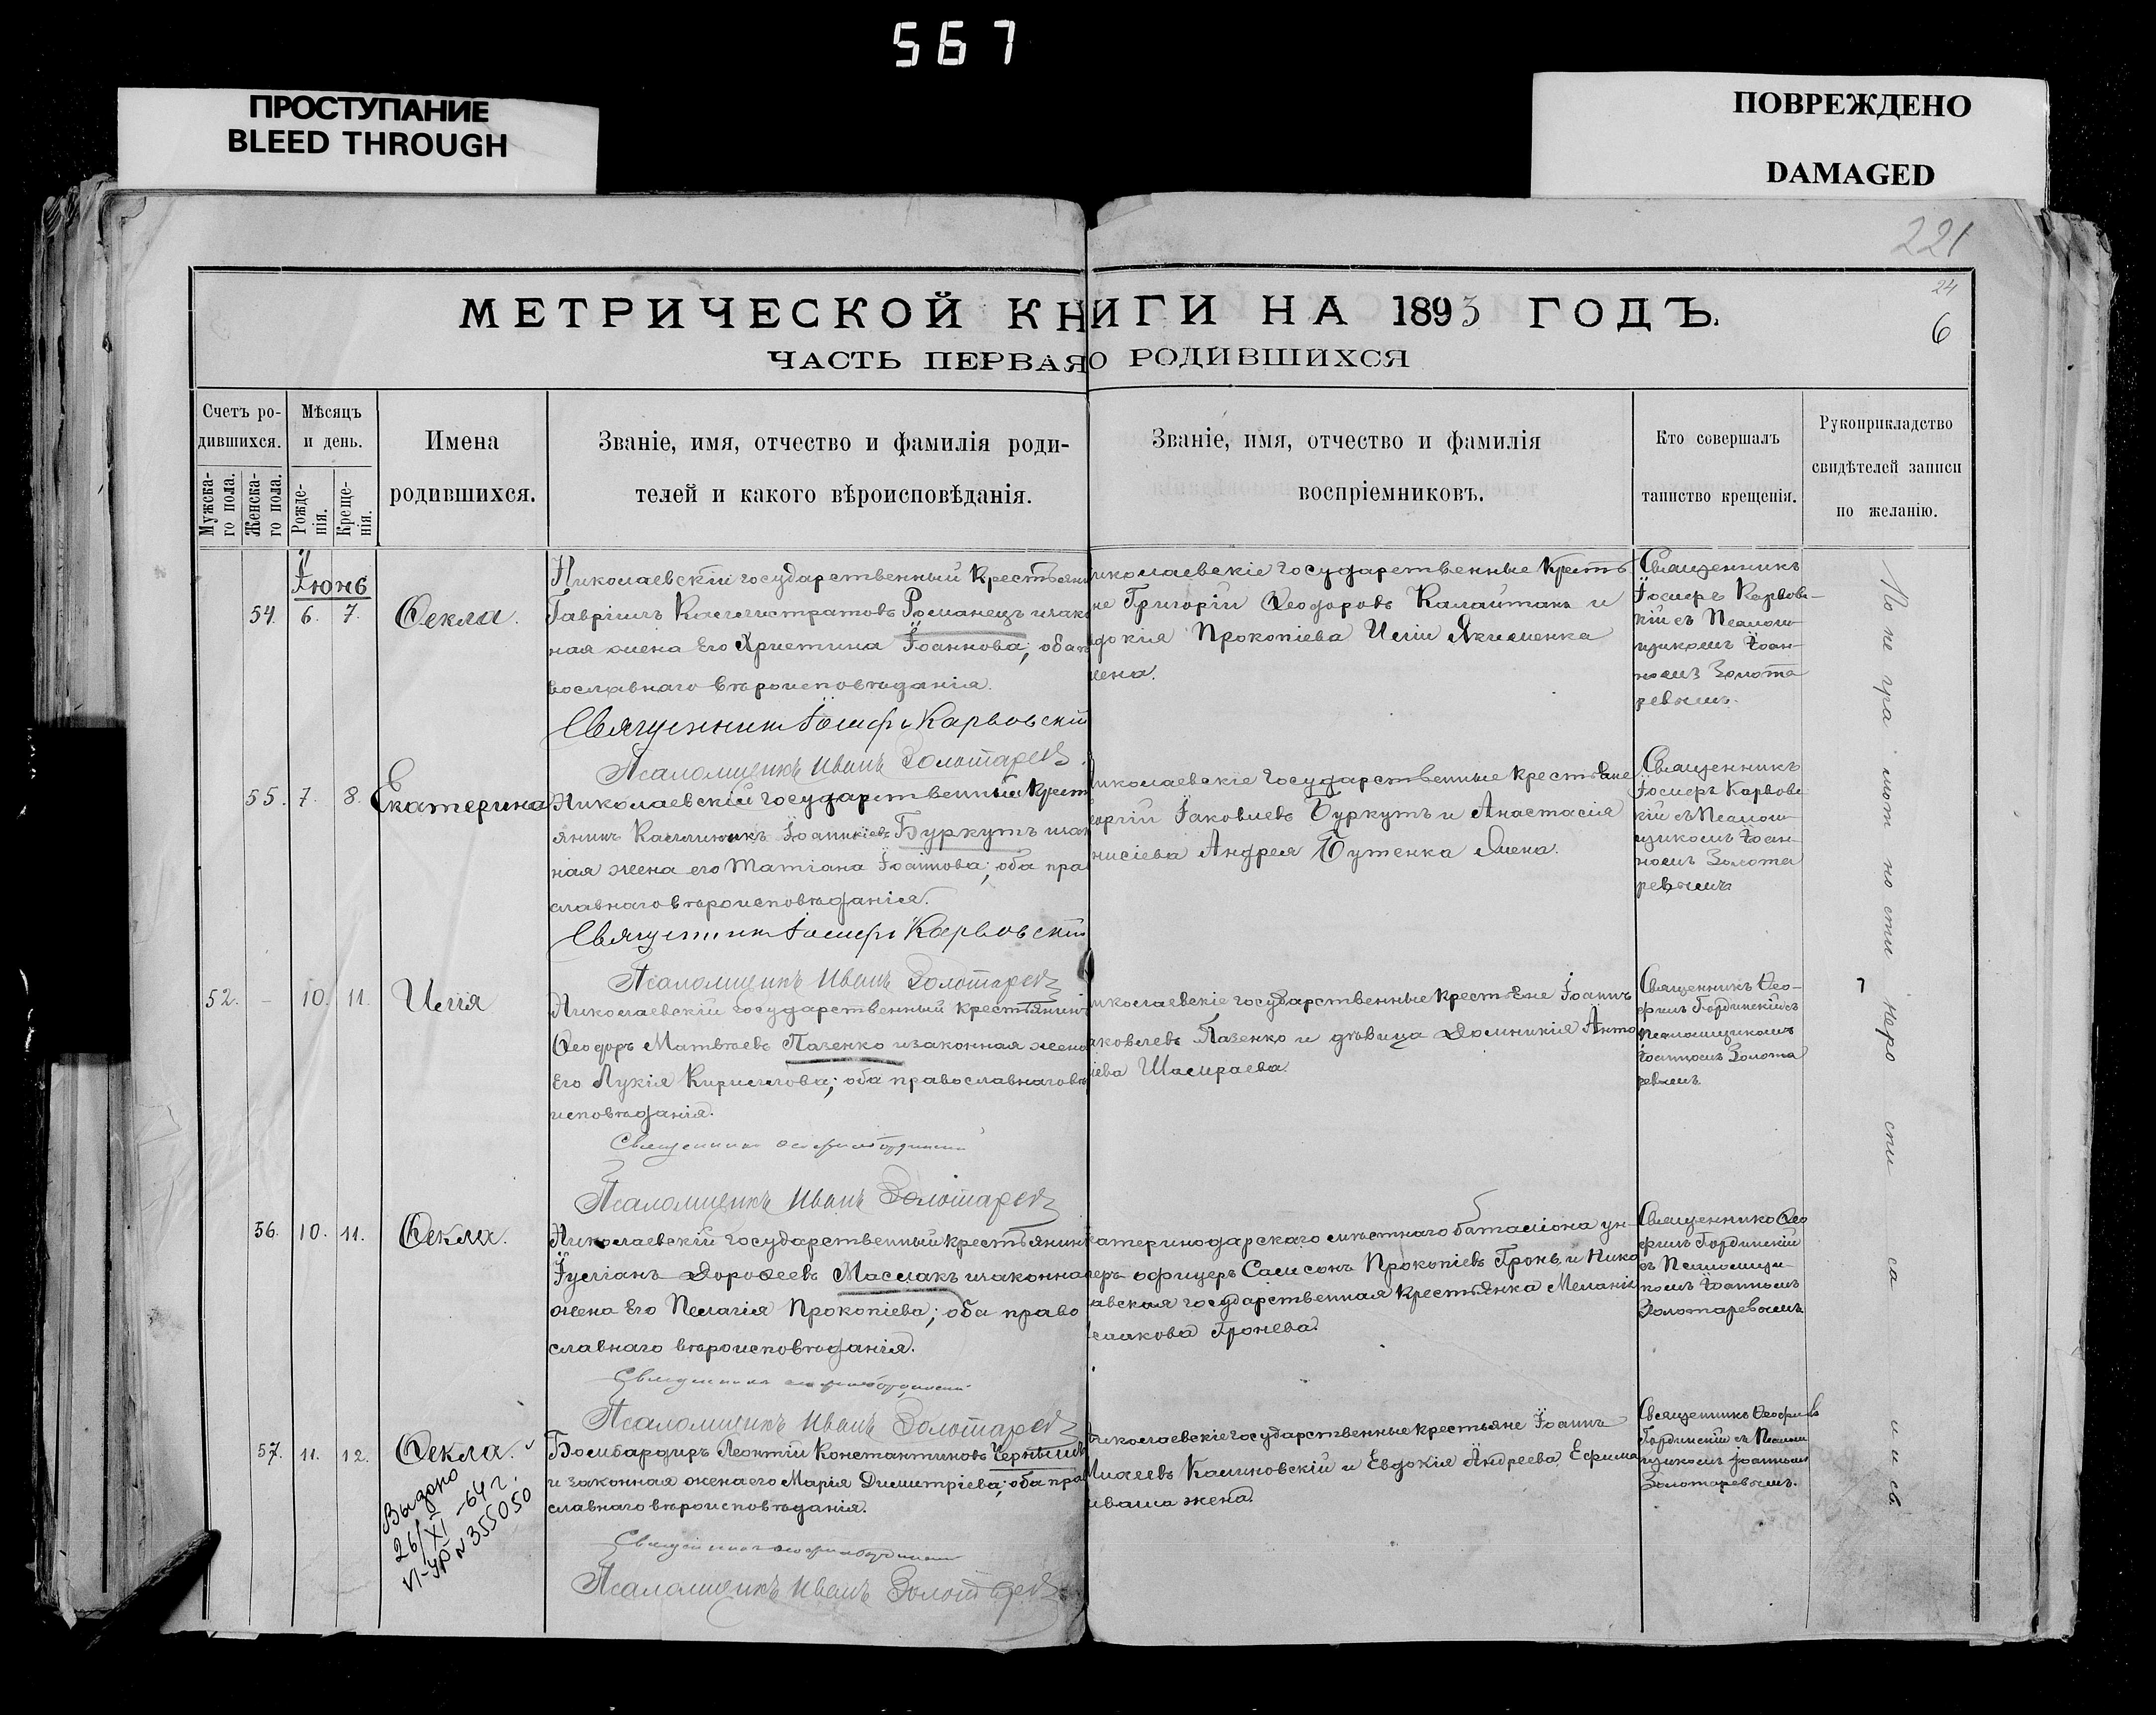 567
ПРОСТУПАНИЕ
BLEED THROUGH
ПОВРЕЖДЕНО
DAMAGED
221
24
6
МЕТРИЧЕСКОЙ КНИГИ НА 1893 ГОДЪ.
ЧАСТЬ ПЕРВАЯ О РОДИВШИХСЯ
Счетъ ро-
дившихся.
Мужска-
го пола.
Женска-
го пола.
Мѣсяцъ
и день.
Рожде-
нія.
Креще-
нія.
Имена
родившихся.
Званіе, имя, отчество и фамилія роди-
телей и какого вѣроисповѣданія.
Званіе, имя, отчество и фамилія
воспріемниковъ.
Кто совершалъ
таинство крещенія.
Рукоприкладство
свидѣтелей записи
по желанію.
Іюнь
54. 6. 7.
Ѳекла.
Николаевскій государственный крестьяни
Гавріилъ Каллистратовъ Романецъ и зако
ная жена его Христина Іоаннова; оба п
вославнаго вѣроисповѣданія.
Священникъ Іосифъ Карвовскій
Псаломщикъ Иванъ Золотаревъ
иколаевскіе государственные кресть
не Григорій Ѳеодоровъ Калайтанъ и
вдокія Прокопіева Иліи Якименка
жена.
Священникъ
Іосифъ Карвов-
кій съ Псалом-
щикомъ Іоан-
номъ Золота
ревымъ.
55. 7. 8.
Екатерина
Николаевскій государственный крест
янинъ Каллиникъ Іоанникіевъ Буркутъ и зак
ная жена его Татіана Іоаннова; оба пра
славнаго вѣроисповѣданія.
Священникъ Іосифъ Карвовскій
Псаломщикъ Иванъ Золотаревъ
иколаевскіе государственные крестьяне
оргій Іаковлевъ Буркутъ и Анастасія
нисіева Андрея Бутенка жена.
Священникъ
Іосифъ Карвовс
кій съ Псалом-
щикомъ Іоан-
номъ Золота
ревымъ
52. - 10. 11.
Илія
Николаевскій государственный крестьянинъ
Ѳеодоръ Матвѣевъ Пазенко и законная жена
его Лукія Кириллова; оба православнаго вѣ
исповѣданія.
Священникъ
Псаломщикъ Иванъ Золотаревъ
иколаевскіе государственные крестьяне Іоаннъ
аковлевъ Пазенко и дѣвица Домникія Анто
іева Шамраева
Священникъ Ѳео-
филъ Гординскій съ
Псаломщикомъ
Іоанномъ Золота
ревымъ.
56. 10. 11.
Ѳекла.
Николаевскій государственный крестьянинъ
Іуліанъ Дороѳеевъ Маслакъ и законна
жена его Пелагія Прокопіева; оба право
славнаго вѣроисповѣданія.
Священникъ
Псаломщикъ Иванъ Золотаревъ
катеринодарскаго мѣстнаго баталіона ун-
еръ офицеръ Самсонъ Прокопіевъ Гронь и Нико
аевская государственная крестьянка Меланія
емакова Гронева.
Священникъ Ѳео
филъ Гординскій
съ Псаломщи-
комъ Іоанномъ
Золотаревымъ
57. 11. 12.
Ѳекла.
Выдано
26/XI-64 г.
VI-УР № 355050
Бомбардиръ Леонтій Константиновъ Чернышъ
и законная жена его Марія Димитріева; оба пра
славнаго вѣроисповѣданія.
Священникъ
Псаломщикъ Иванъ Золотаревъ
иколаевскіе государственные крестьяне Іоаннъ
Калиновскій и Евдокія Андреева Ефима
жена.
Священникъ Ѳеофилъ
Гординскій съ Псалом
щикомъ Іоанномъ
Золотаревымъ.
По не гра мот но сти